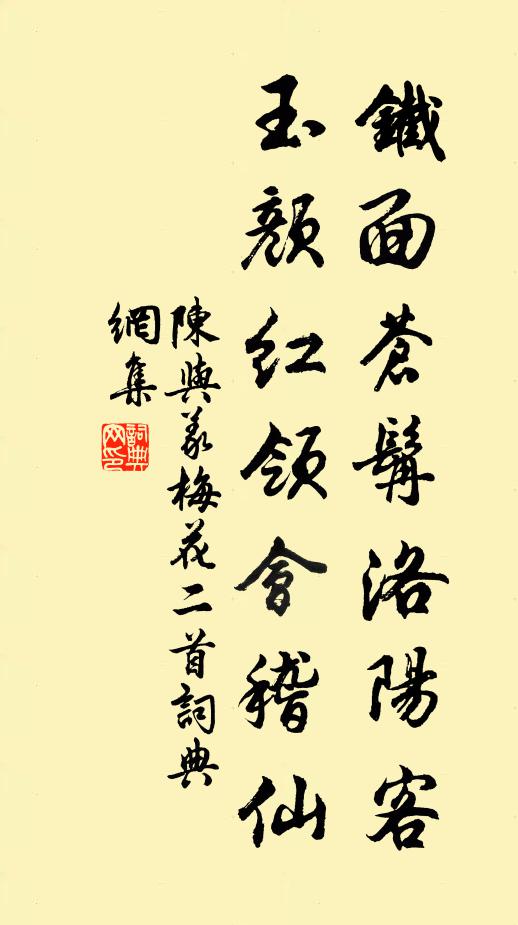 鐵面蒼髯洛陽客
玉顏紅領會稽仙
陳與義梅花二首詞典
網集
詞典
网印